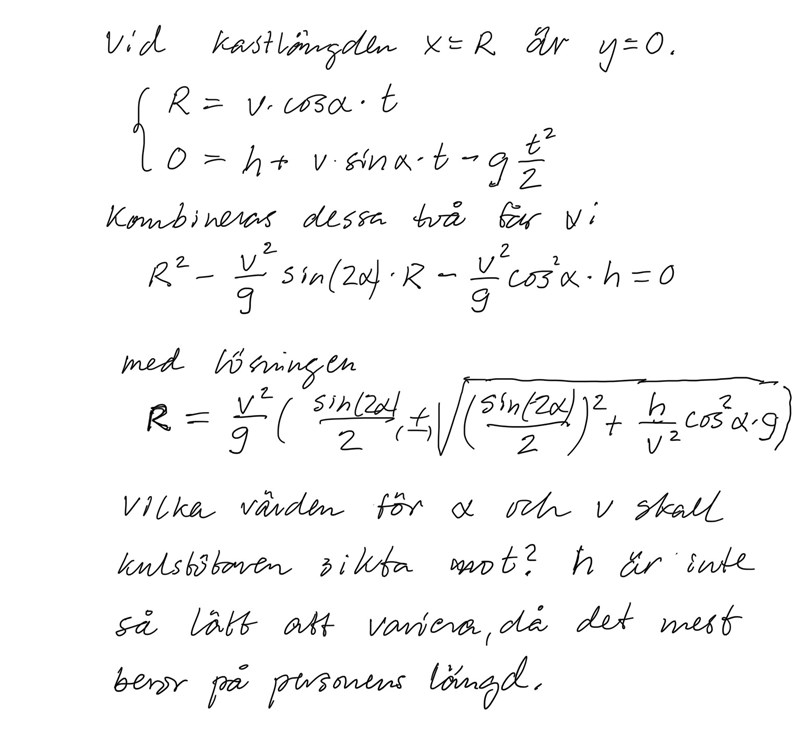 Vid kastlängden x = R är y = 0.
R = v · cosα · t
0 = h + v · sinα · t − g t²/2
Kombineras dessa två får vi
R² − v²/g sin(2α) · R − v²/g cos²α · h = 0
med lösningen
R = v²/g ( sin(2α)/2 (±) √( (sin(2α)/2)² + h/v² cos²α · g ) )
Vilka värden för α och v skall
kulstötaren sikta mot? h är inte
så lätt att variera, då det mest
beror på personens längd.